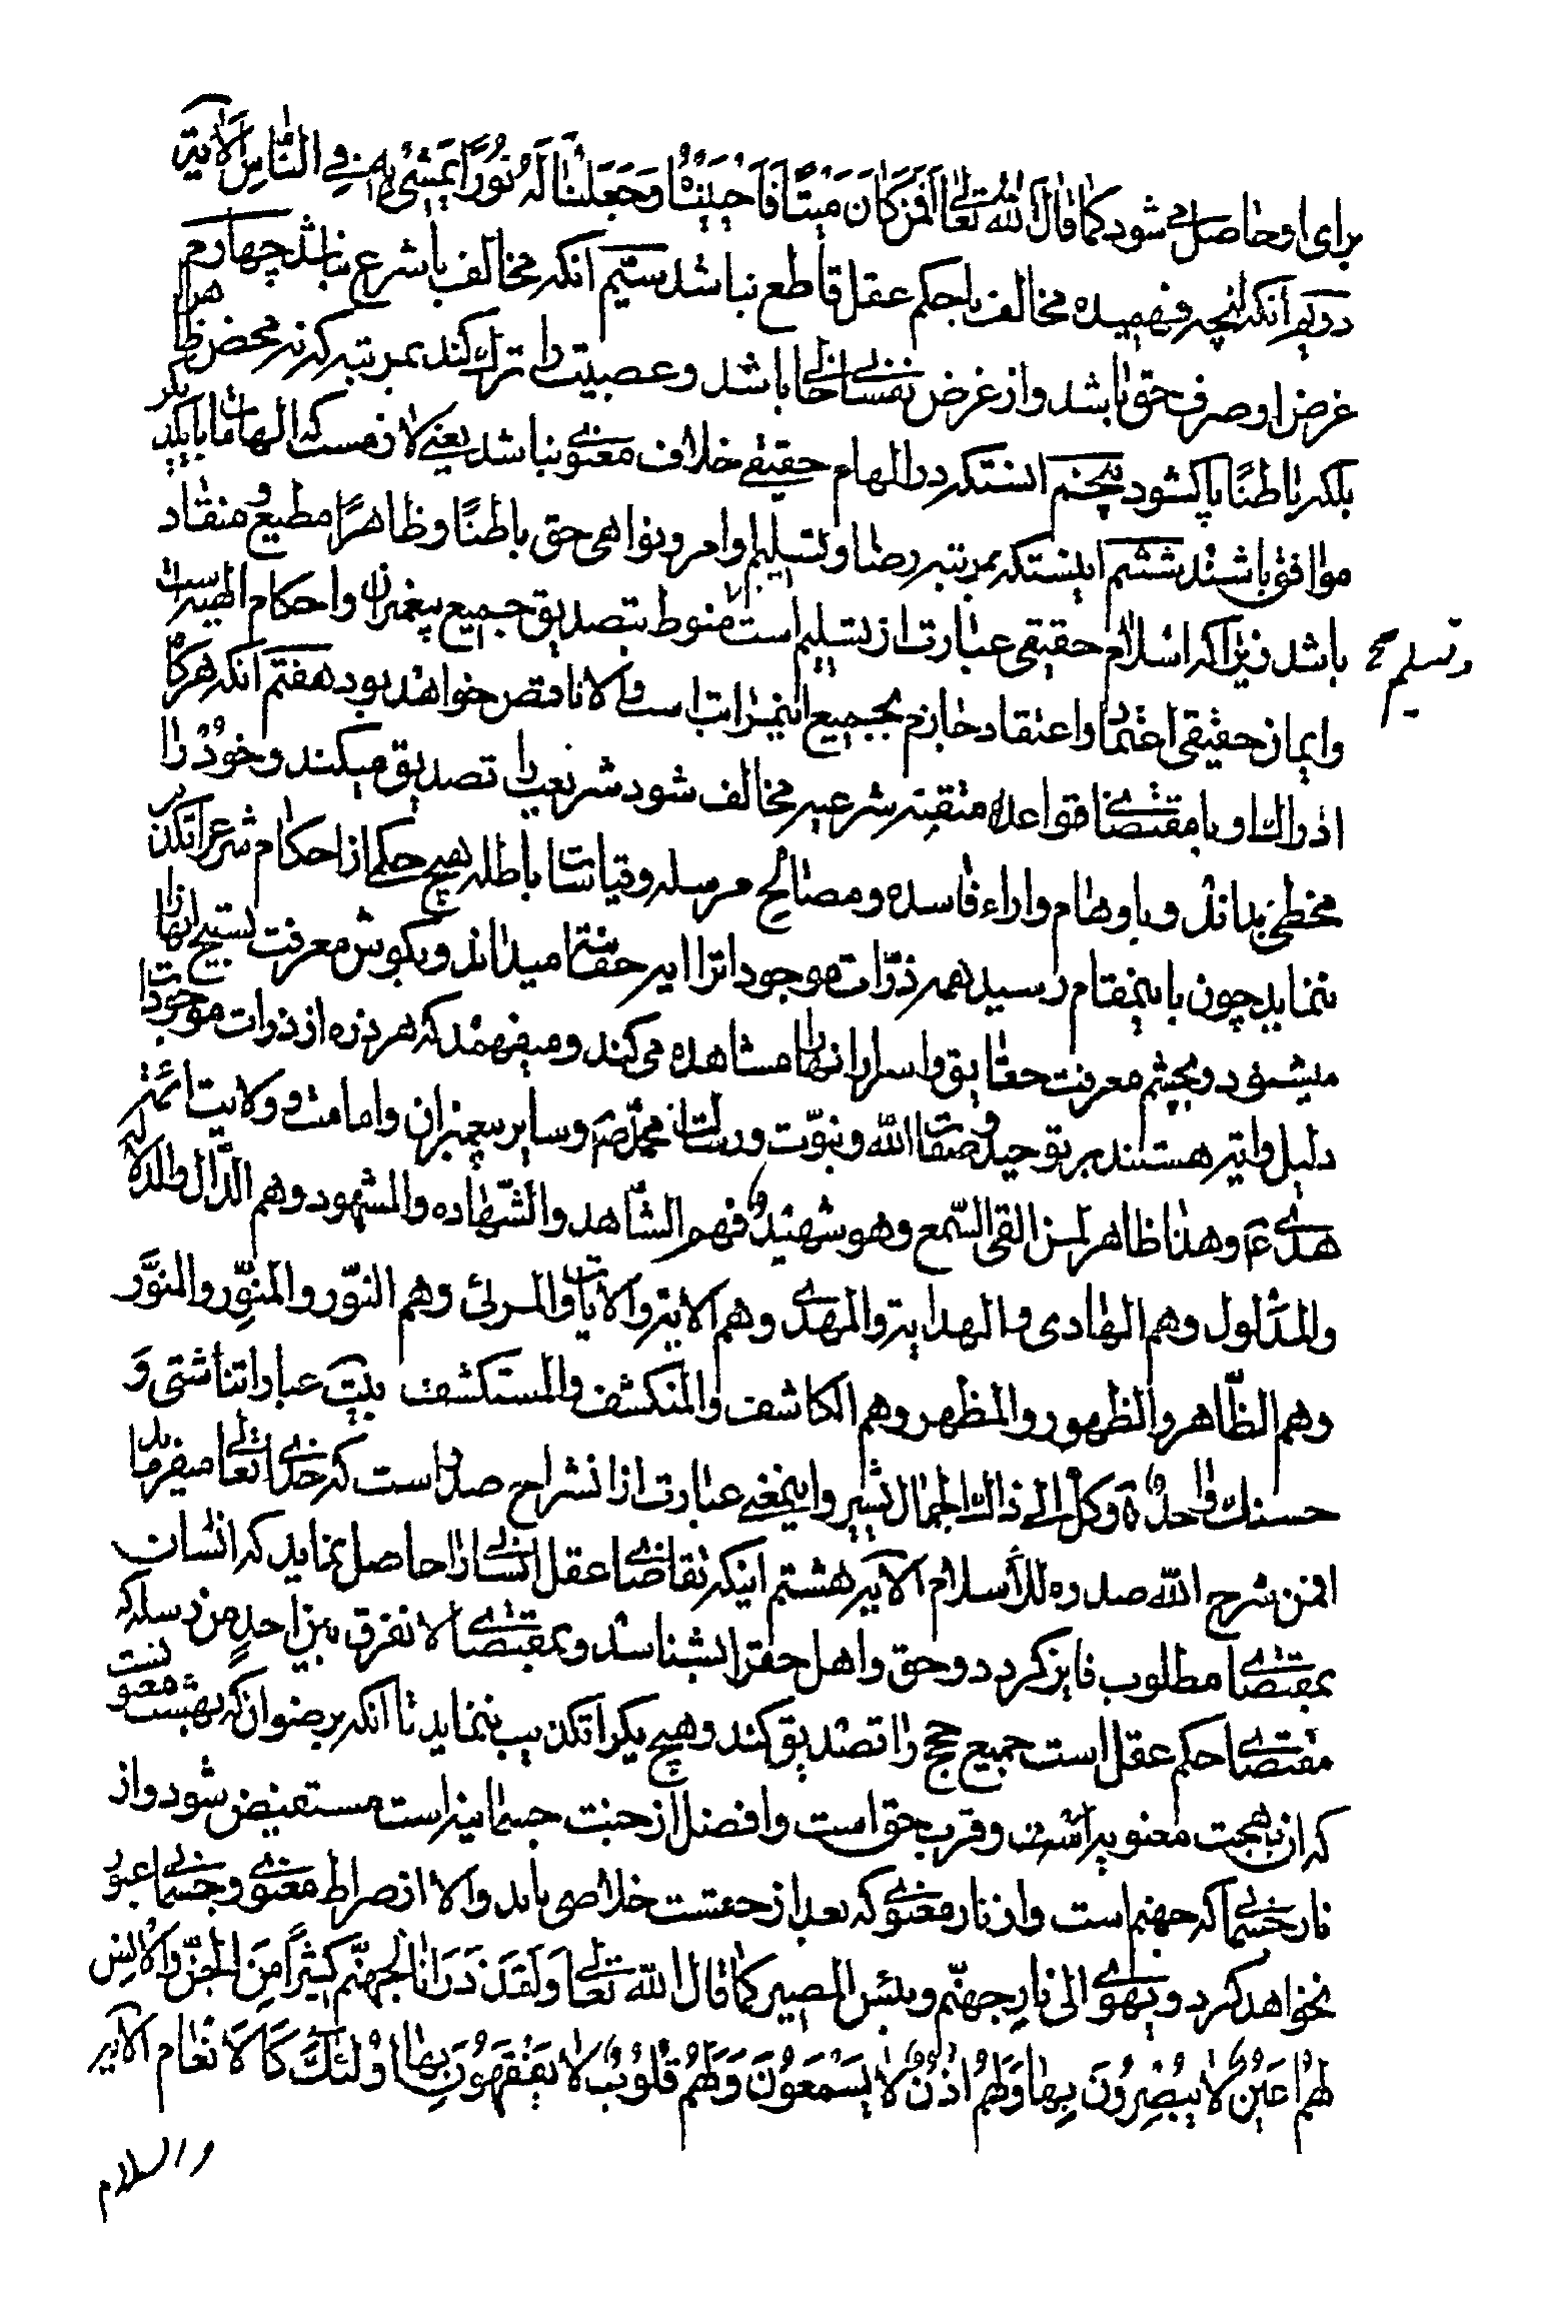 برای او حاصل می شود کما قال الله تعالی اَفَمَن کَانَ مَیتًا فَاَحیَینَاهُ وَجَعَلنَا لَهُ نُورًا یَمشِی بِهِ فِی النَّاسِ الآیة
دویم آنکه آنچه فهمیده مخالف با حکم عقل قاطع نباشد سیّم آنکه مخالف با شرع نباشد چهارم
غرض او صرف حق باشد و از غرض نفسانی خالی باشد و عصبیت را ترک کند بمرتبه که نه محض ظاهرا
بلکه باطنًا پاک شود پنجم اینستکه در الهام حقیقی خلاف معنوی نباشد یعنی لازمست که الهامات با یکدیگر
موافق باشند ششم اینستکه بمرتبه رضا و تسلیم اوامر و نواهی حق باطنًا و ظاهرًا مطیع و منقاد
باشد زیرا که اسلام حقیقی عبارت از تسلیم است منوط بتصدیق جمیع پیغمبران و احکام الهیه است
و تسلیم صح
و ایمان حقیقی اعتماد و اعتقاد جازم بجمیع اینمراتب است و الا ناقص خواهد بود هفتم آنکه هرگاه
ادراک او با مقتضای قواعد متقنه شرعیه مخالف شود شریعت را تصدیق میکند و خود را
مخطی بداند و باوهام و اراء فاسده و مصالح مرسله و قیاسات باطله هیچ حکمی از احکام شرعرا تکذیب
ننماید چون باینمقام رسید همه ذرّات موجوداترا ایه حقتعالی میداند و بگوش معرفت تسبیح انها را
میشنود و بچشم معرفت حقایق و اسرار انها را مشاهده می کند و میفهمد که هر ذره از ذرات موجودات
دلیل و ایه هستند بر توحید و صفات الله و نبوّت و رسالت محمّد ص و سایر پیغمبران و امامت و ولایت ائمّه
هدی ع و هذا ظاهر لمن القی السّمع و هو شهید فهم الشّاهد و الشّهاده و المشهود و هم الدّال و الدلالة
و المدلول و هم الهادی و الهدایة و المهدی و هم الایة و الایات و المرئی و هم النوّر و المنوِّر و المنوَّر
و هم الظّاهر و الظهور و المظهر و هم الکاشف و المنکشف و المستکشف بیت عباراتنا شتی وَ
حسنک واحدٌ وکلّ الی ذاک الجمال یشیر و اینمعنی عبارت از انشراح صدر است که خدای تعالی میفرماید
افمن شرح الله صدره للأسلام الآیه هشتم اینکه تقاضای عقل انسانی را حاصل نماید که انسان
بمقتضای مطلوب فایز گردد و حق و اهل حقرا بشناسد و بمقتضای لا نفرق بین احدٍ من رسله که
مقتضای حکم عقل است جمیع حجج را تصدیق کند و هیچ یکرا تکذیب ننماید تا آنکه برضوان که بهشت معنویست
که ان بهجت معنویه اشرف و قرب حق است و افضل از جنت جسمانیه است مستفیض شود و از
نار جسمانی که جهنم است و از نار معنوی که بعد از حقست خلاصی یابد و الا از صراط معنوی و جسمانی عبور
نخواهد کرد و یهوی الی نارِ جهنّم و بئس المصیر کما قال الله تعالی وَلَقَد ذَرَانَا لِجهنّم کَثیرًا مِنَ الجنّ وَالانِس
لَهُم اَعیُنٌ لَا یُبصِرُونَ بِها وَلَهُم اذَنٌ لَا یَسمَعُونَ وَلَهُم قُلُوبٌ لَا یَفقَهُونَ بِها اوُلئِکَ کَالاَنعام الآیه
والسلام